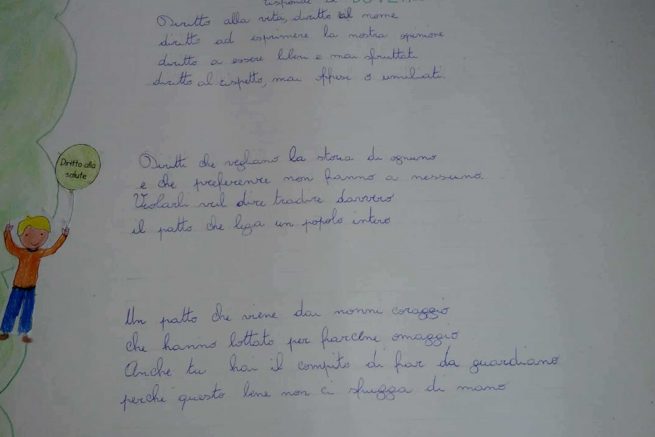 risponde il DOVERE
Diritto alla vita, diritto al nome
diritto ad esprimere la nostra opinione
diritto a essere liberi e mai sfruttati
diritto al rispetto, mai offesi o umiliati.
Diritto alla
salute
Diritti che vegliano la storia di ognuno
e che preferenze non fanno a nessuno.
Violarli vuol dire tradire davvero
il patto che lega un popolo intero
Un patto che viene dai nonni coraggio
che hanno lottato per farcene omaggio
Anche tu hai il compito di far da guardiano
perchè questo bene non ci sfugga di mano